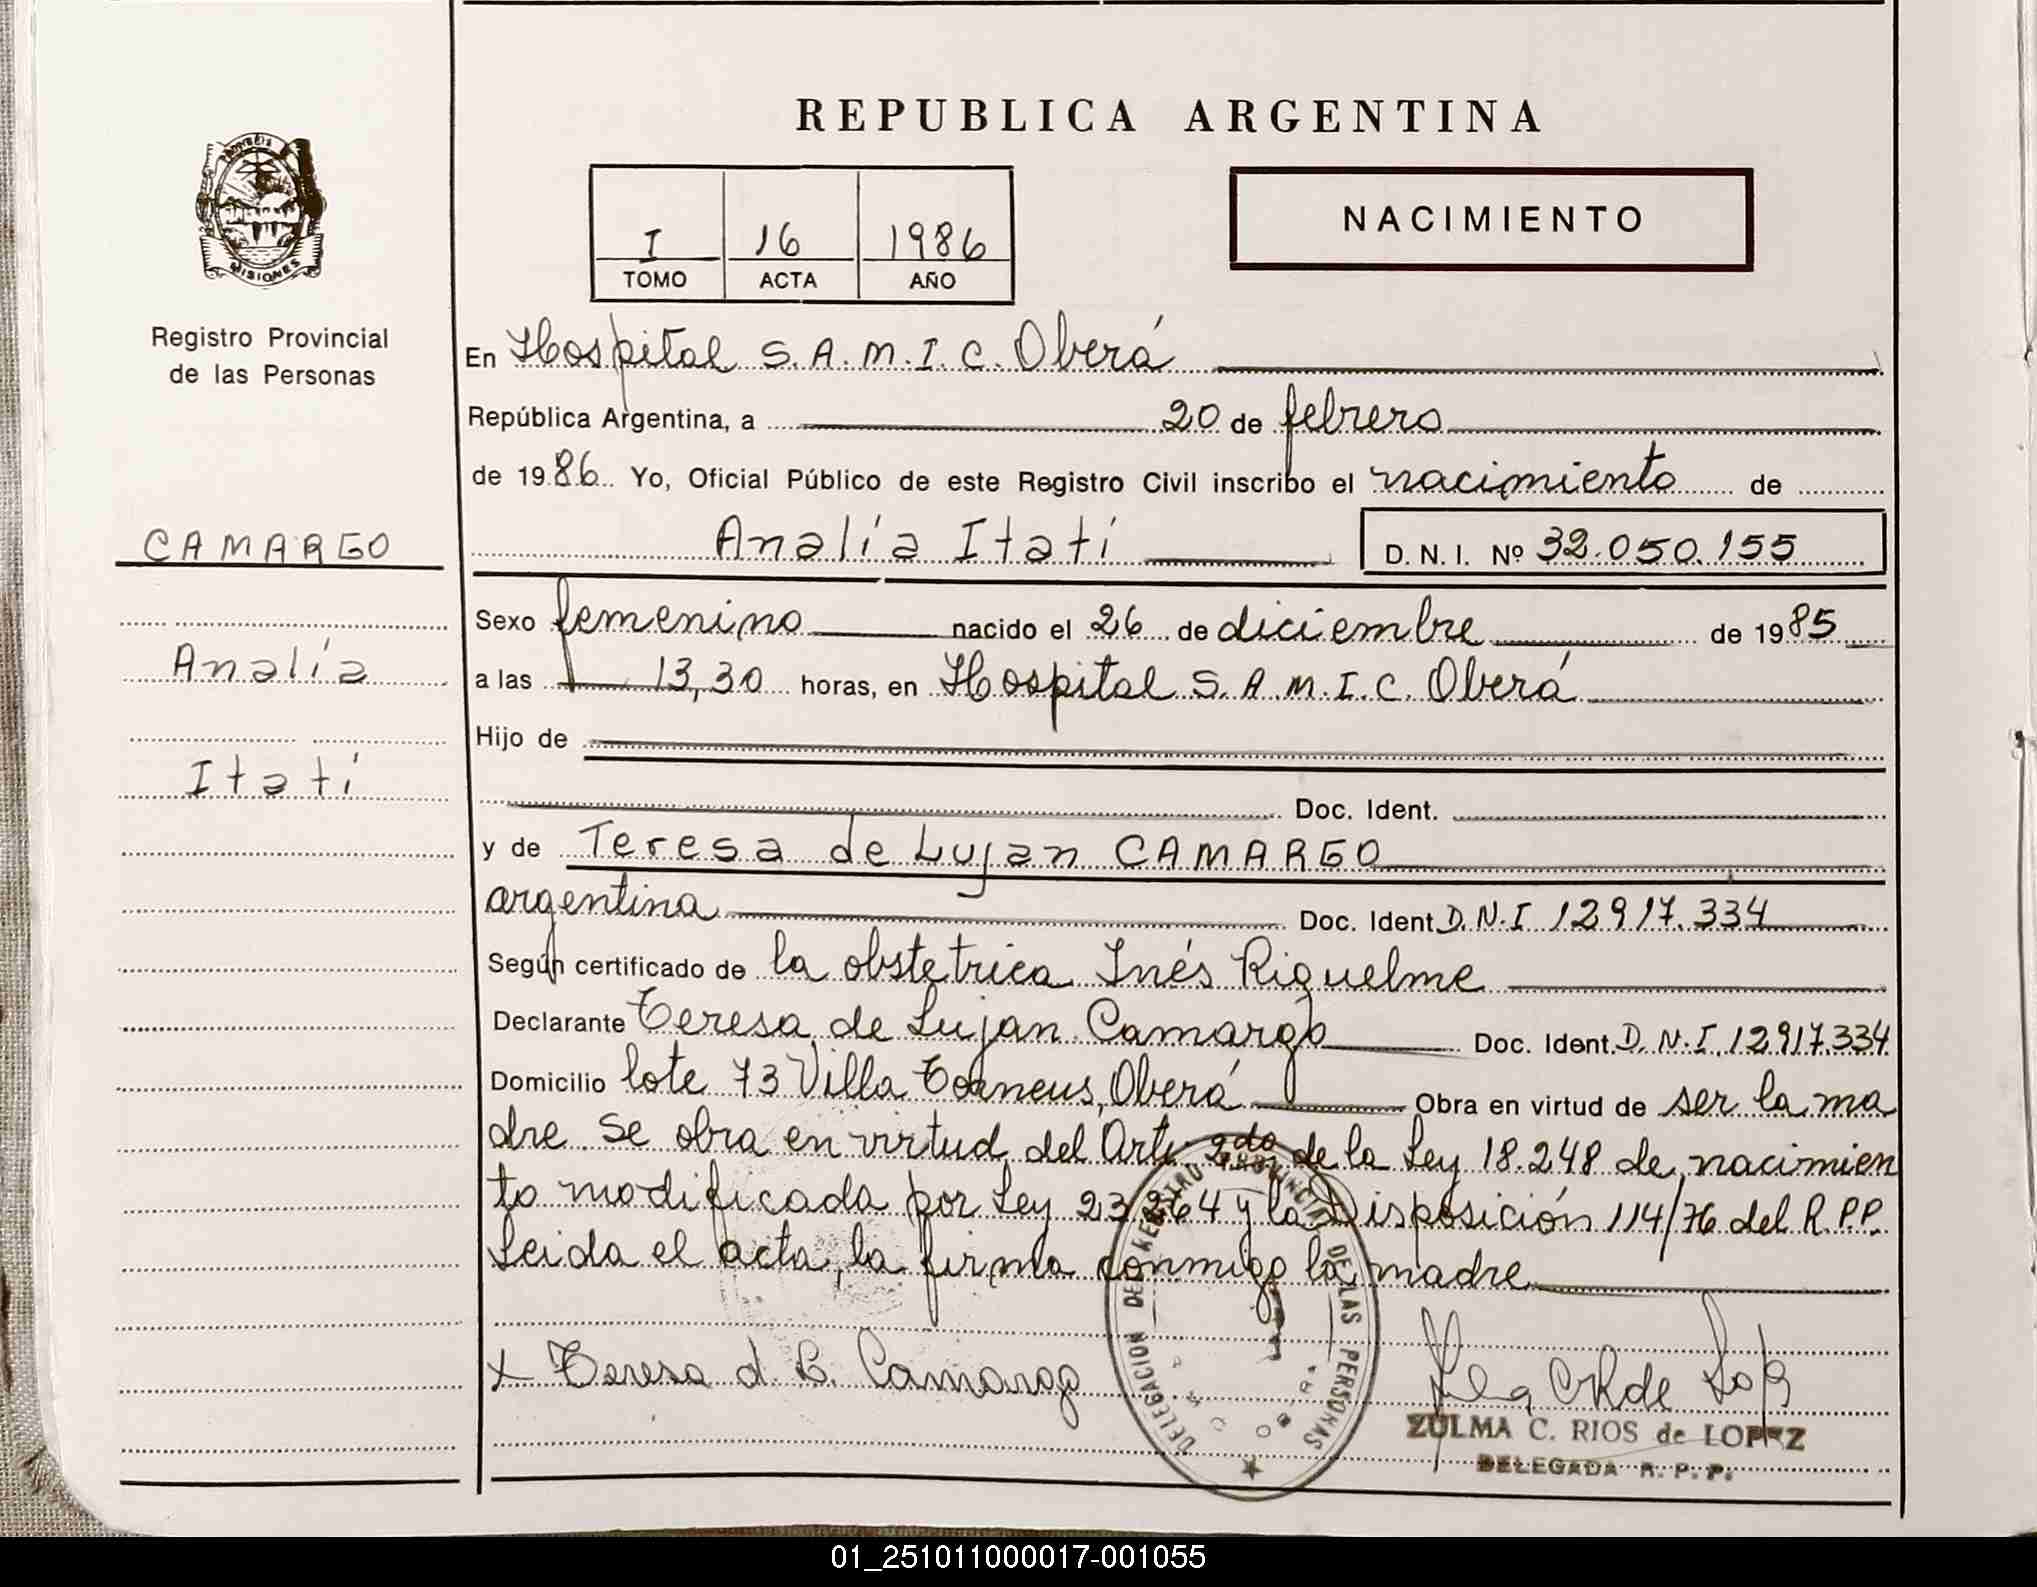 REPUBLICA ARGENTINA
MISIONES
I 16 1986
TOMO ACTA AÑO
NACIMIENTO
Registro Provincial
de las Personas
CAMARGO
Analía
Itatí
En Hospital S.A.M.I.C. Oberá
República Argentina, a 20 de febrero
de 1986 Yo, Oficial Público de este Registro Civil inscribo el nacimiento de
Analía Itatí D. N. I. Nº 32.050.155
Sexo femenino nacido el 26 de diciembre de 1985
a las 13,30 horas, en Hospital S.A.M.I.C. Oberá
Hijo de
Doc. Ident.
y de Teresa de Lujan CAMARGO
argentina Doc. Ident. D.N.I 12917.334
Según certificado de la obstetrica Inés Riquelme
Declarante Teresa de Lujan Camargo Doc. Ident. D.N.I. 12917.334
Domicilio lote 73 Villa Oberá Obra en virtud de ser la ma
dre Se obra en virtud del Art. 2do de la Ley 18.248 de nacimien
to modificada por Ley 23.264 y la Disposición 114/76 del R.P.P.
Leida el acta, la firma conmigo la madre
x Teresa d. Camargo
DELEGACION DEL REGISTRO PROVINCIAL DE LAS PERSONAS
ZULMA C. RIOS de LOPEZ
DELEGADA R. P. P.
01_251011000017-001055